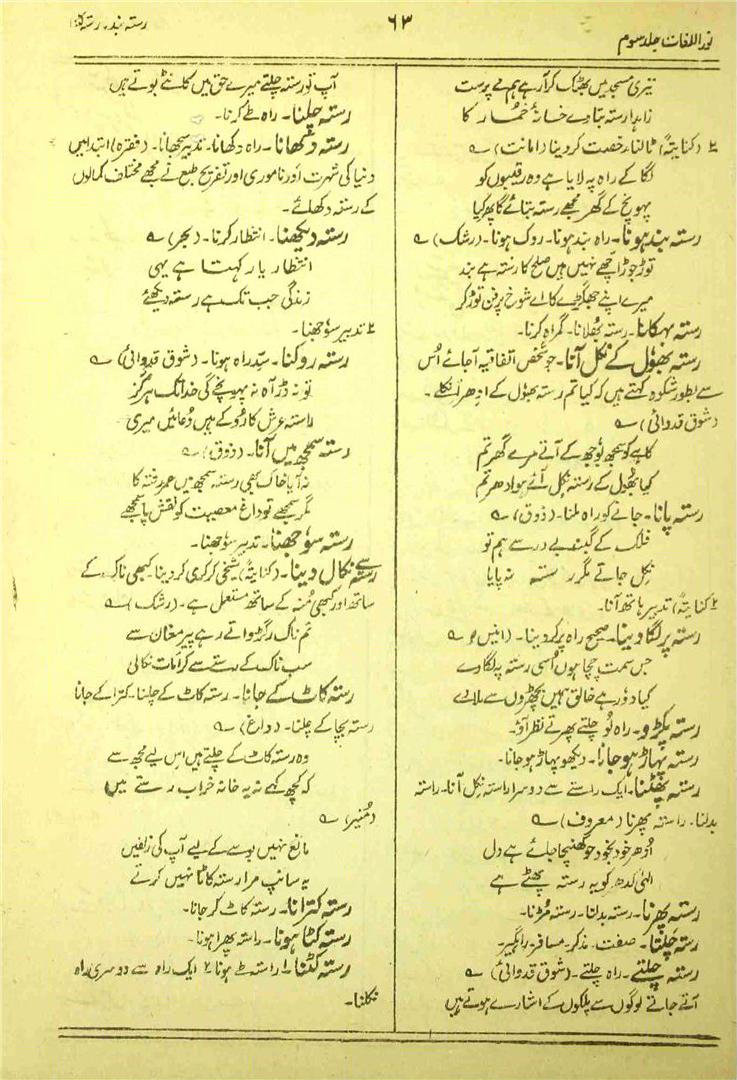 نور اللغات جلد سوم
۶۳
رستہ بند۔ رستہ کٹنا
تیری مسجد میں بھٹک کر آرہے ہم مے پرست
زاہدا رستہ بتادے خانۂ خمار کا
۲ (کنایتہً) ٹالنا۔ رخصت کردینا (امانت) ؎
لگا کے راہ پہ لایا ہے وہ رقیبوں کو
پہونچ کے گھر مجھے رستہ بتائے گا پھر کیا
رستہ بند ہونا۔ راہ بند ہونا۔ روک ہونا۔ (رشک) ؎
توڑ جوڑ اچھے نہیں ہیں صلح کا رستہ ہے بند
میرے اپنے جھگڑے کا اے شوخ پرفن توڑ کر
رستہ بہکانا۔ رستہ بھلانا۔ گمراہ کرنا۔
رستہ بھول کے نکل آنا۔ جو شخص اتفاقیہ آجائے اُس
سے بطور شکوہ کہتے ہیں کہ کیا تم رستہ بھول کے ادھر آنکلے۔
(شوق قدوائی) ؎
کاہے کو سمجھ بوجھ کے آتے مرے گھر تم
کیا بھول کے رستہ نکل آئے ہو ادھر تم
رستہ پانا۔ جانے کو راہ ملنا۔ (ذوق) ؎
فلک کے گنبد بے در سے ہم تو
نکل جاتے مگر رستہ نہ پایا
۲ (کنایتہً) تدبیر ہاتھ آنا۔
رستہ پر لگا دینا۔ صحیح راہ پر کردینا۔ (انیس) ؎
جس سمت چچا ہوں اُسی رستہ پہ لگادے
کیا دور ہے خالق ہمیں بچھڑوں سے ملادے
رستہ پکڑو۔ راہ لو چلتے پھرتے نظر آؤ۔
رستہ پہاڑ ہوجانا۔ دیکھو پہاڑ ہوجانا۔
رستہ پھٹنا۔ ایک راستے سے دوسرا راستہ نکل آنا۔ راستہ
بدلنا۔ راستہ پھرنا (معروف) ؎
اُدھر خود بخود جو کھنچا جائے ہے دل
الٰہی کدھر کو یہ رستہ پھٹے ہے
رستہ پھرنا۔ رستہ بدلنا۔ رستہ مڑنا۔
رستہ چلتا۔ صفت۔ مذکر۔ مسافر۔ راہگیر۔
رستہ چلتے۔ راہ چلتے۔ (شوق قدوائی) ؎
آتے جاتے لوگوں سے پلکوں کے اشارے ہوتے ہیں
آپ تو رستہ چلتے میرے حق میں کانٹے بوتے ہیں
رستہ چلنا۔ راہ طے کرنا۔
رستہ دکھانا۔ راہ دکھانا۔ تدبیر سجھانا۔ (فقرہ) ابتدا میں
دنیا کی شہرت اور ناموری اور تفریح طبع نے مجھے مختلف کمالوں
کے رستہ دکھلائے۔
رستہ دیکھنا۔ انتظار کرنا۔ (بحر) ؎
انتظار یار کہتا ہے یہی
زندگی جب تک ہے رستہ دیکھئے
۲ تدبیر سوجھنا۔
رستہ روکنا۔ سدّ راہ ہونا۔ (شوق قدوائی) ؎
تو نہ ڈر آہ نہ پہونچے گی خدا تک ہرگز
راستہ عرش کا روکے ہیں دُعائیں میری
رستہ سمجھ میں آنا۔ (ذوق) ؎
نہ آیا خاک بھی رستہ سمجھ میں عمر رفتہ کا
مگر سمجھے تو داغ معصیت کو نقش پا سمجھے
رستہ سوجھنا۔ تدبیر سوجھنا۔
رستہ سے نکال دینا۔ (کنایتہً) شیخی کرکری کردینا۔ کبھی ناک کے
ساتھ اور کبھی مُنہ کے ساتھ مستعمل ہے۔ (رشک) ؎
تم ناک رگڑواتے رہے پیر مغاں سے
سب ناک کے رستے سے کرامات نکالی
رستہ کاٹ کے جانا۔ رستہ کاٹ کے چلنا۔ کترا کے جانا
رستہ بچا کے چلنا۔ (داغ) ؎
وہ رستہ کاٹ کے چلتے ہیں اس لیے مجھ سے
کہ کچھ کہے نہ یہ خانہ خراب رستے میں
(مُنیر) ؎
مانع نہیں بوسے کے لیے آپ کی زلفیں
یہ سانپ مرا رستہ کاٹا نہیں کرتے
رستہ کترانا۔ رستہ کاٹ کر جانا۔
رستہ کٹا ہونا۔ راستہ پھرا ہونا۔
رستہ کٹنا۔ ۱ راستہ طے ہونا ۲ ایک راہ سے دوسری راہ
نکلنا۔